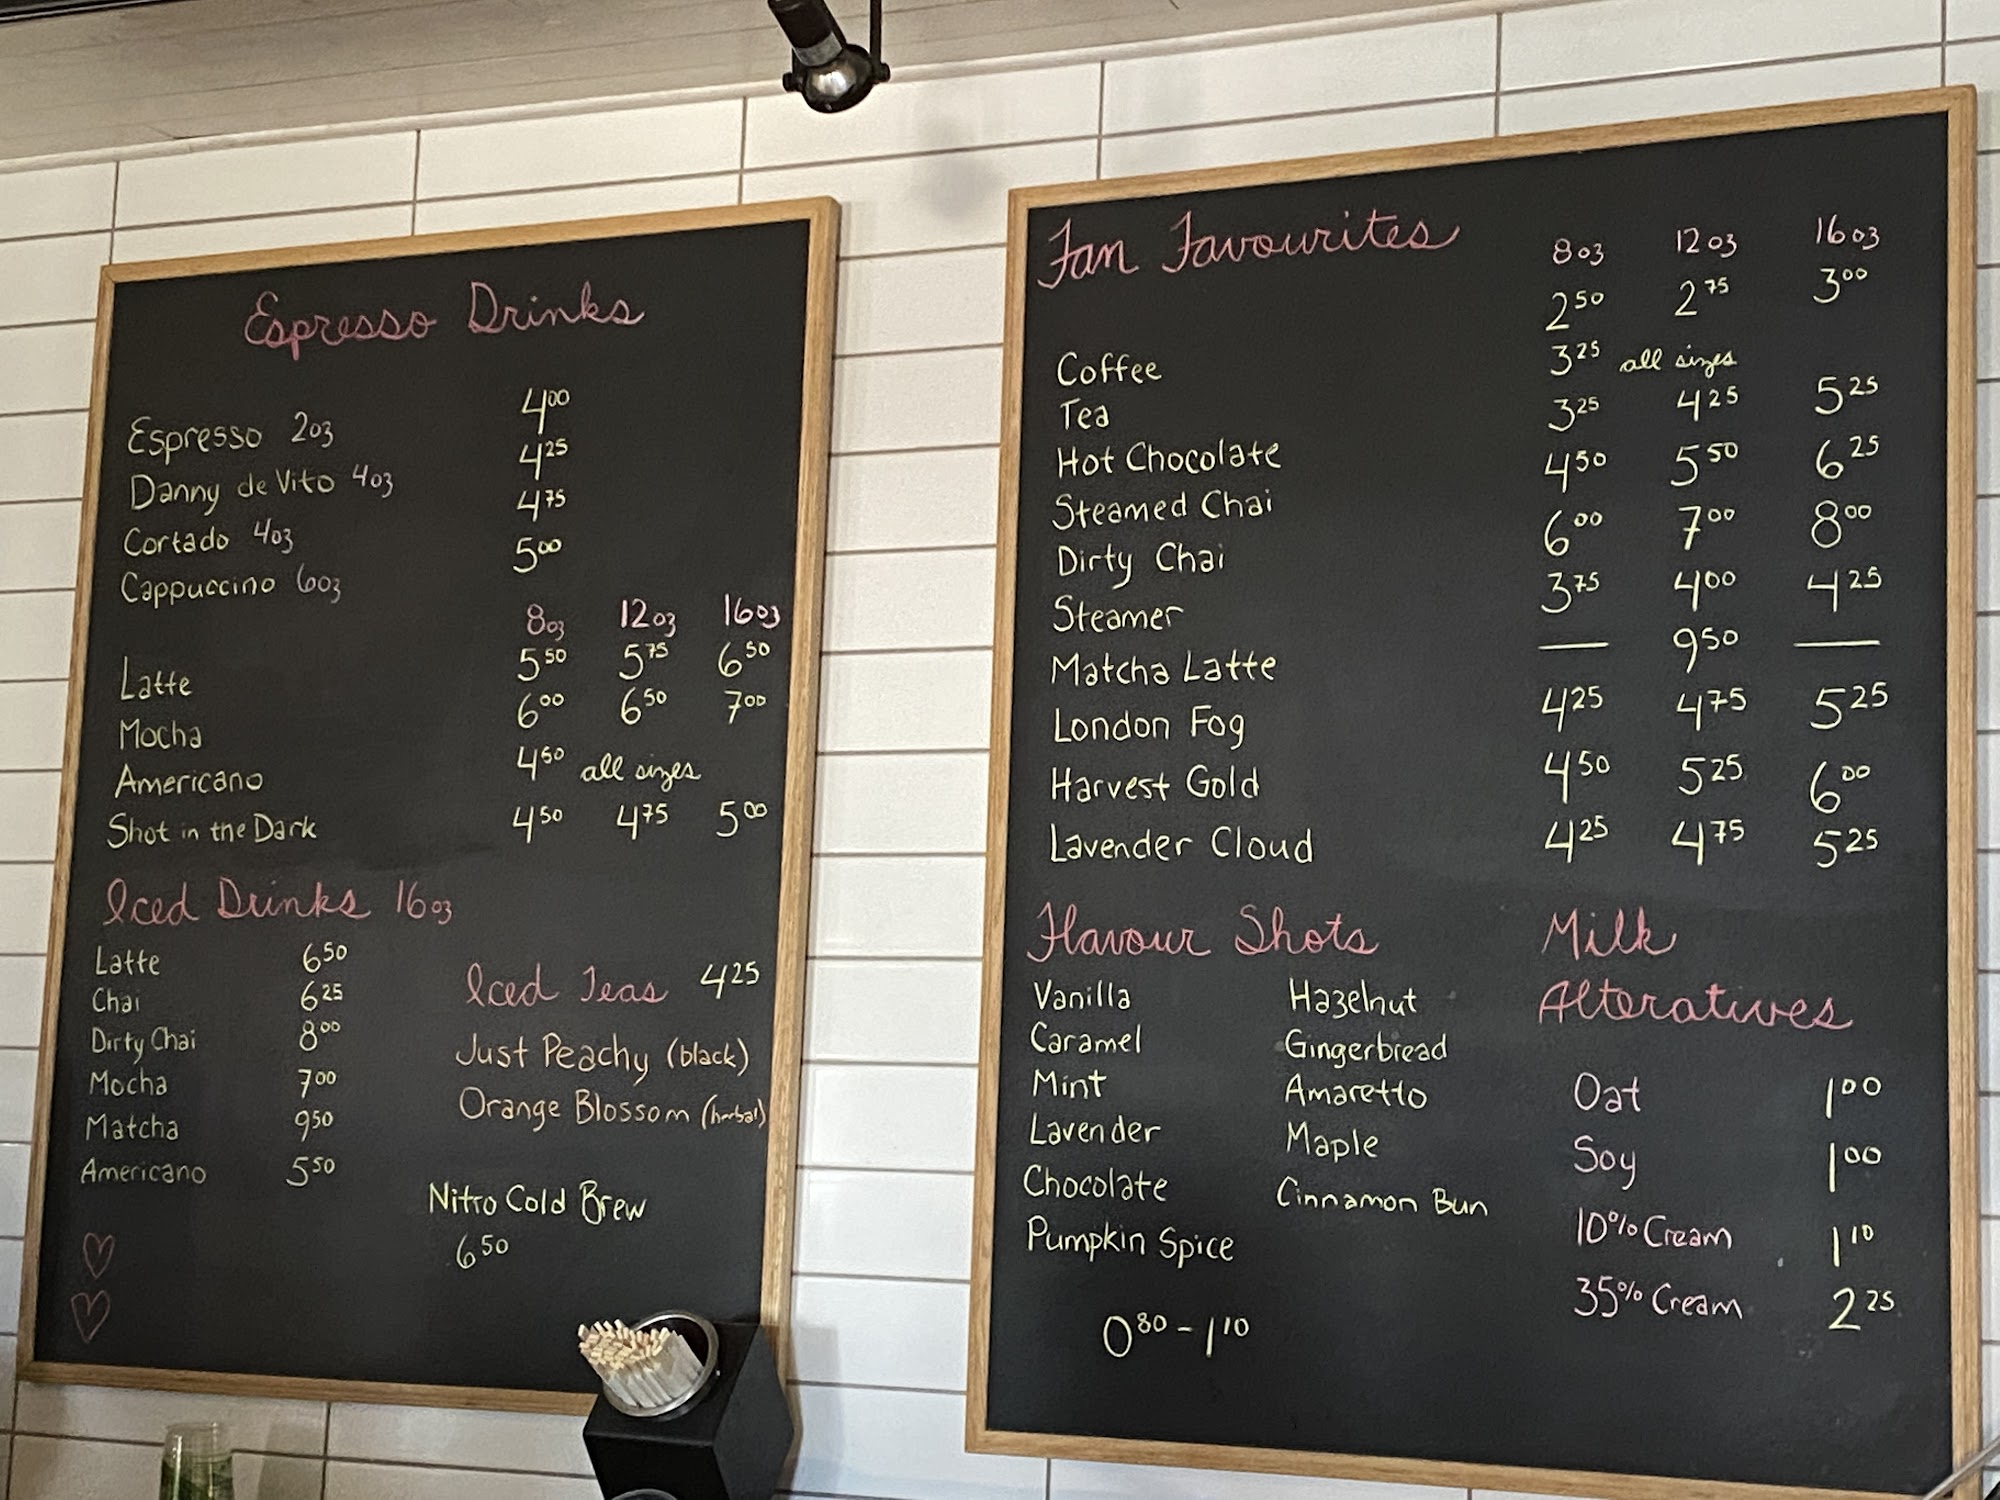 Espresso Drinks
Espresso 2oz 4.00
Danny de Vito 4oz 4.25
Cortado 4oz 4.75
Cappuccino 6oz 5.00
8oz 12oz 16oz
Latte 5.50 5.75 6.50
Mocha 6.00 6.50 7.00
Americano 4.50 all sizes
Shot in the Dark 4.50 4.75 5.00
Iced Drinks 16oz
Latte 6.50
Chai 6.25
Dirty Chai 8.00
Mocha 7.00
Matcha 9.50
Americano 5.50
Iced Teas 4.25
Just Peachy (black)
Orange Blossom (herbal)
Nitro Cold Brew
6.50
Fan Favourites 8oz 12oz 16oz
Coffee 2.50 2.75 3.00
Tea 3.25 all sizes
Hot Chocolate 3.25 4.25 5.25
Steamed Chai 4.50 5.50 6.25
Dirty Chai 6.00 7.00 8.00
Steamer 3.75 4.00 4.25
Matcha Latte — 9.50 —
London Fog 4.25 4.75 5.25
Harvest Gold 4.50 5.25 6.00
Lavender Cloud 4.25 4.75 5.25
Flavour Shots
Vanilla
Caramel
Mint
Lavender
Chocolate
Pumpkin Spice
Hazelnut
Gingerbread
Amaretto
Maple
Cinnamon Bun
0.80 - 1.10
Milk
Alteratives
Oat 1.00
Soy 1.00
10% Cream 1.10
35% Cream 2.25